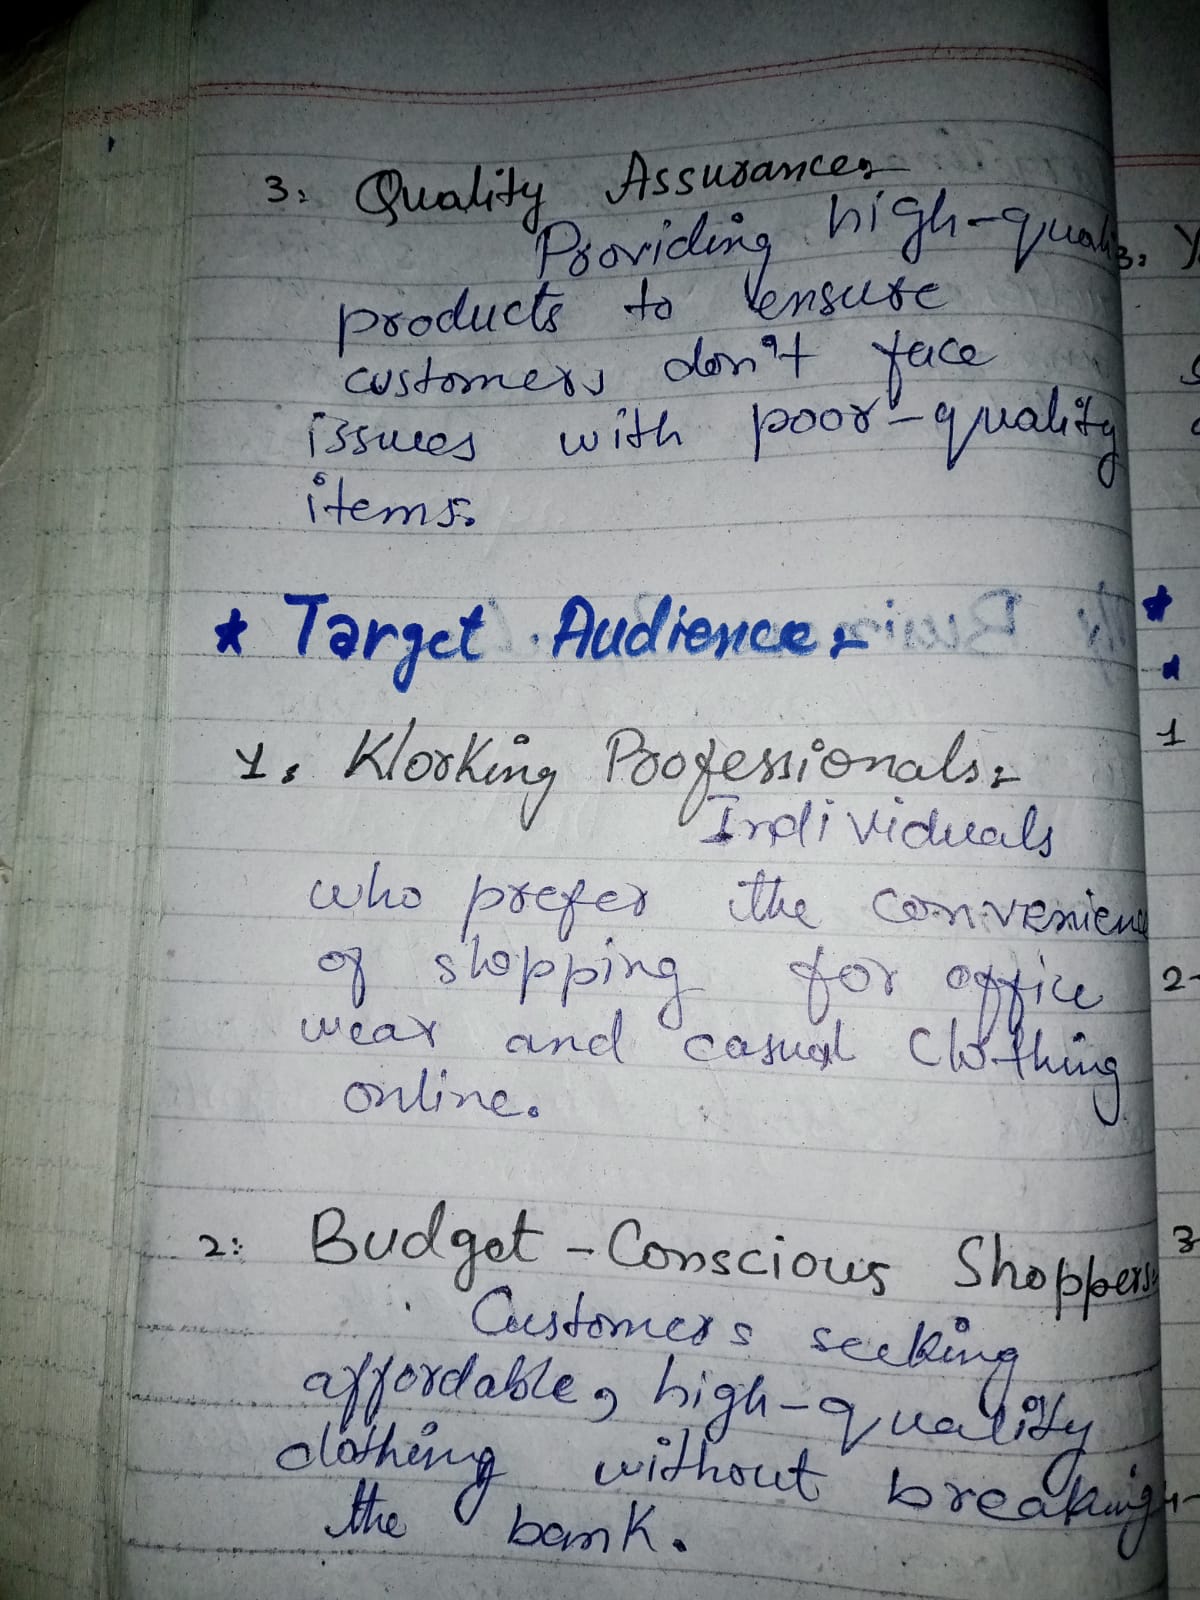 3: Quality Assurance:-
Providing high-quali
products to ensure
customers don't face
issues with poor-quality
items.
* Target Audience:-
1: Working Professionals:-
Individuals
who prefer the convenienc
of shopping for office
wear and casual clothing
online.
2: Budget-Conscious Shoppers:-
Customers seeking
affordable, high-quality
clothing without breaking
the bank.
3:
*
1
2-
3